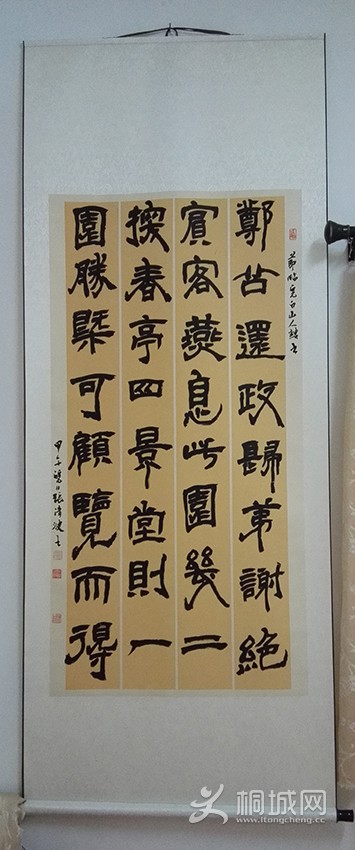 節臨完白山人隸书
鄭還政歸第謝絕
賓客燕息此園幾二
探春亭四景堂則一
園勝槩可顧覽而得
甲午張
桐城网
www.itongcheng.cc